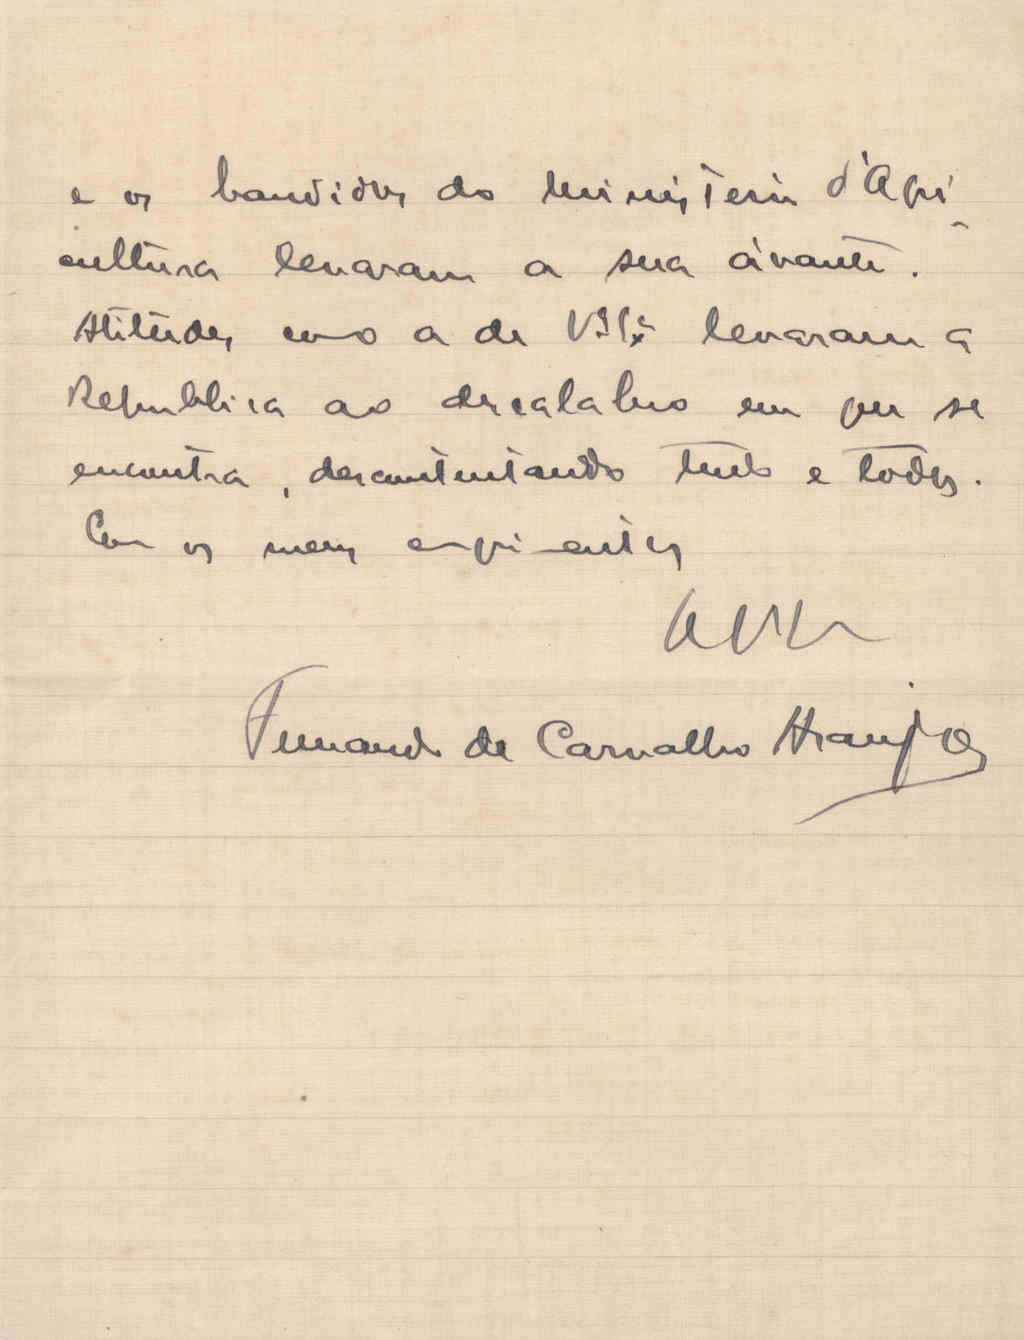 e os bandidos do Ministerio d'Agri-
cultura levaram a sua ávante.
Atitudes como a de V. Ex.ª levaram a
Republica ao descalabro em que se
encontra, descontentando tudo e todos.
Com os meus cumprimentos
Fernando de Carvalho Araujo